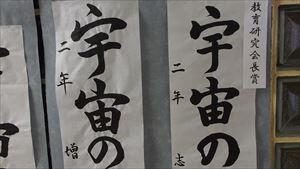 教育研究会長賞
宇宙の
二年 志
宇宙の
二年 増